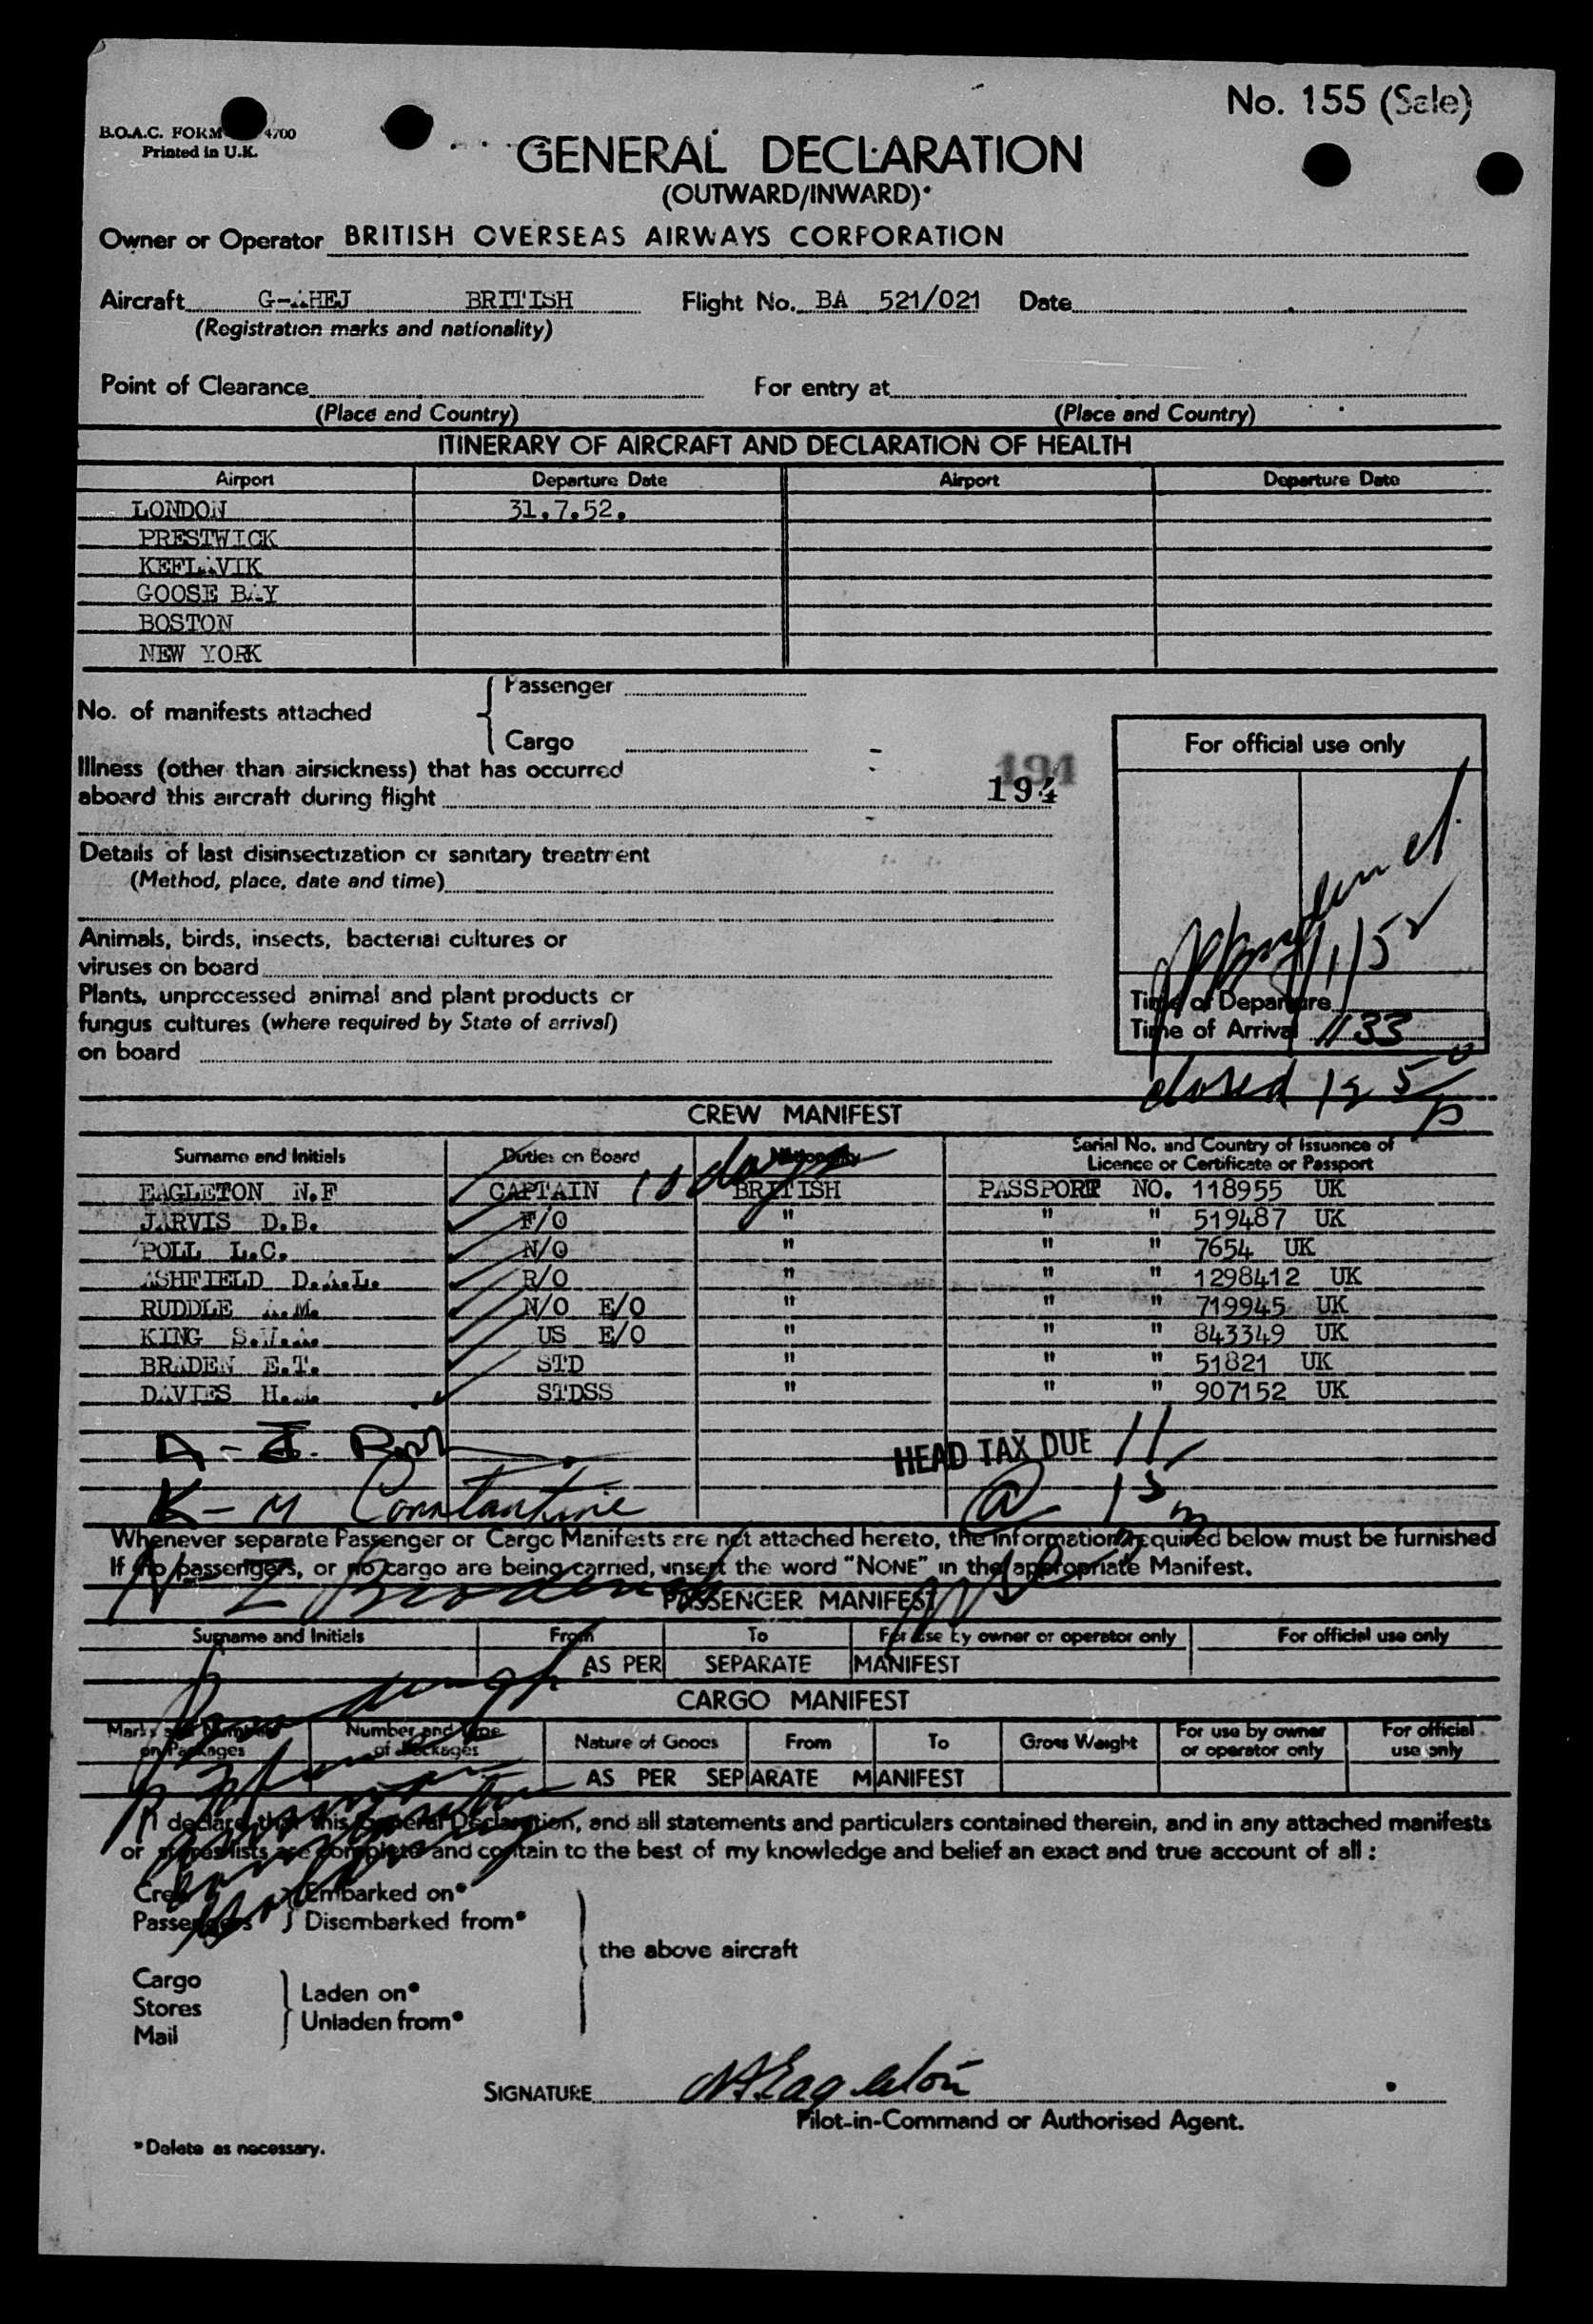 No. 155 (Sale)
B.O.A.C. FORM 4700
Printed in U.K.
GENERAL DECLARATION
(OUTWARD/INWARD)*
Owner or Operator BRITISH OVERSEAS AIRWAYS CORPORATION
Aircraft G-AHEJ BRITISH Flight No. BA 521/021 Date
(Registration marks and nationality)
Point of Clearance For entry at
(Place and Country) (Place and Country)
ITINERARY OF AIRCRAFT AND DECLARATION OF HEALTH
Airport Departure Date Airport Departure Date
LONDON 31.7.52.
PRESTWICK
KEFLAVIK
GOOSE BAY
BOSTON
NEW YORK
No. of manifests attached
Passenger
Cargo
For official use only
Illness (other than airsickness) that has occurred
aboard this aircraft during flight
194
194
Details of last disinsectization or sanitary treatment
(Method, place, date and time)
Animals, birds, insects, bacterial cultures or
viruses on board
Plants, unprocessed animal and plant products or
fungus cultures (where required by State of arrival)
on board
Time of Departure
Time of Arrival 1133
closed
CREW MANIFEST
Surname and Initials Duties on Board Nationality Serial No. and Country of Issuance of
Licence or Certificate or Passport
EAGLETON N.F CAPTAIN BRITISH PASSPORT NO. 118955 UK
JARVIS D.B. F/O " " " 519487 UK
POLL L.C. N/O " " " 7654 UK
ASHFIELD D.A.L. R/O " " " 1298412 UK
RUDDLE A.M. N/O E/O " " " 719945 UK
KING US E/O " " " 843349 UK
BRADEN E.T. STD " " " 51821 UK
DAVIES STDSS " " " 907152 UK
10 days
HEAD TAX DUE 11
K-M Constantine
Whenever separate Passenger or Cargo Manifests are not attached hereto, the information required below must be furnished
If no passengers, or no cargo are being carried, insert the word "NONE" in the appropriate Manifest.
PASSENGER MANIFEST
Surname and Initials From To For use by owner or operator only For official use only
AS PER SEPARATE MANIFEST
CARGO MANIFEST
Marks and Numbers on Packages Number and Type of Packages Nature of Goods From To Gross Weight For use by owner or operator only For official use only
AS PER SEPARATE MANIFEST
I declare that this General Declaration, and all statements and particulars contained therein, and in any attached manifests
or stores lists are complete and contain to the best of my knowledge and belief an exact and true account of all :
Crew Embarked on*
Passengers Disembarked from*
the above aircraft
Cargo
Stores
Mail
Laden on*
Unladen from*
SIGNATURE N F Eagleton
Pilot-in-Command or Authorised Agent.
*Delete as necessary.